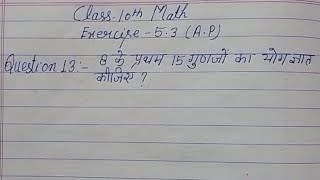 Class. 10th Math
Exercise - 5.3 (A.P)
Question 13:- 8 के प्रथम 15 गुणजों का योग ज्ञात
कीजिए ?